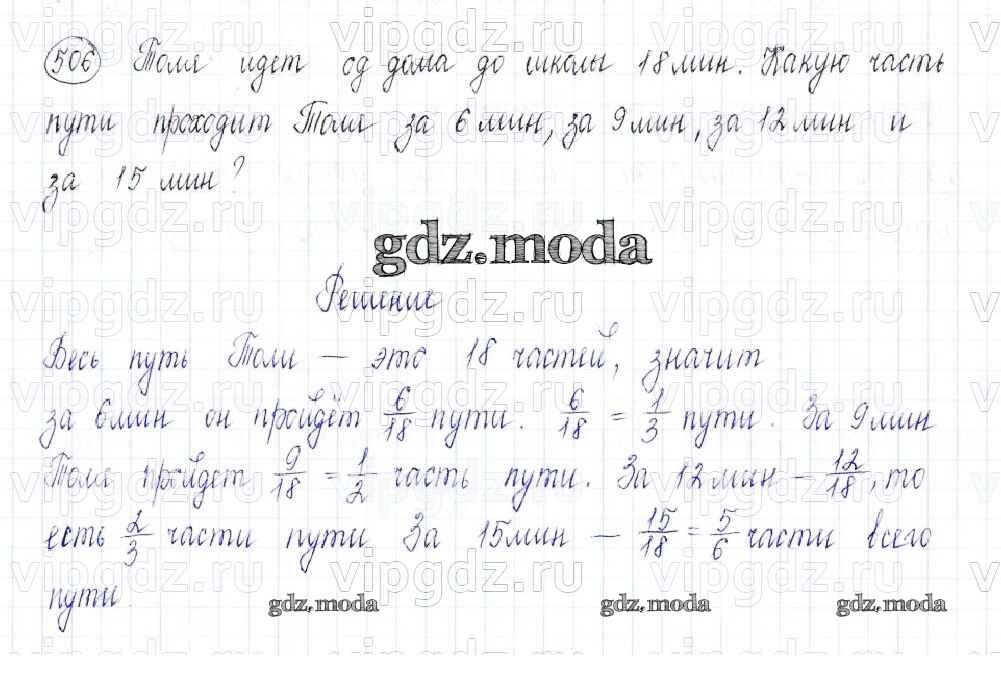 506 Толя идет од дома до школы 18 мин. Какую часть
пути проходит Толя за 6 мин, за 9 мин, за 12 мин и
за 15 мин?
gdz.moda
Решение
Весь путь Толи — это 18 частей, значит
за 6 мин он пройдёт 6/18 пути. 6/18 = 1/3 пути. За 9 мин
Толя пройдет 9/18 = 1/2 часть пути. За 12 мин — 12/18, то
есть 2/3 части пути За 15 мин — 15/18 = 5/6 части всего
пути.
gdz.moda gdz.moda gdz.moda
vipgdz.ru